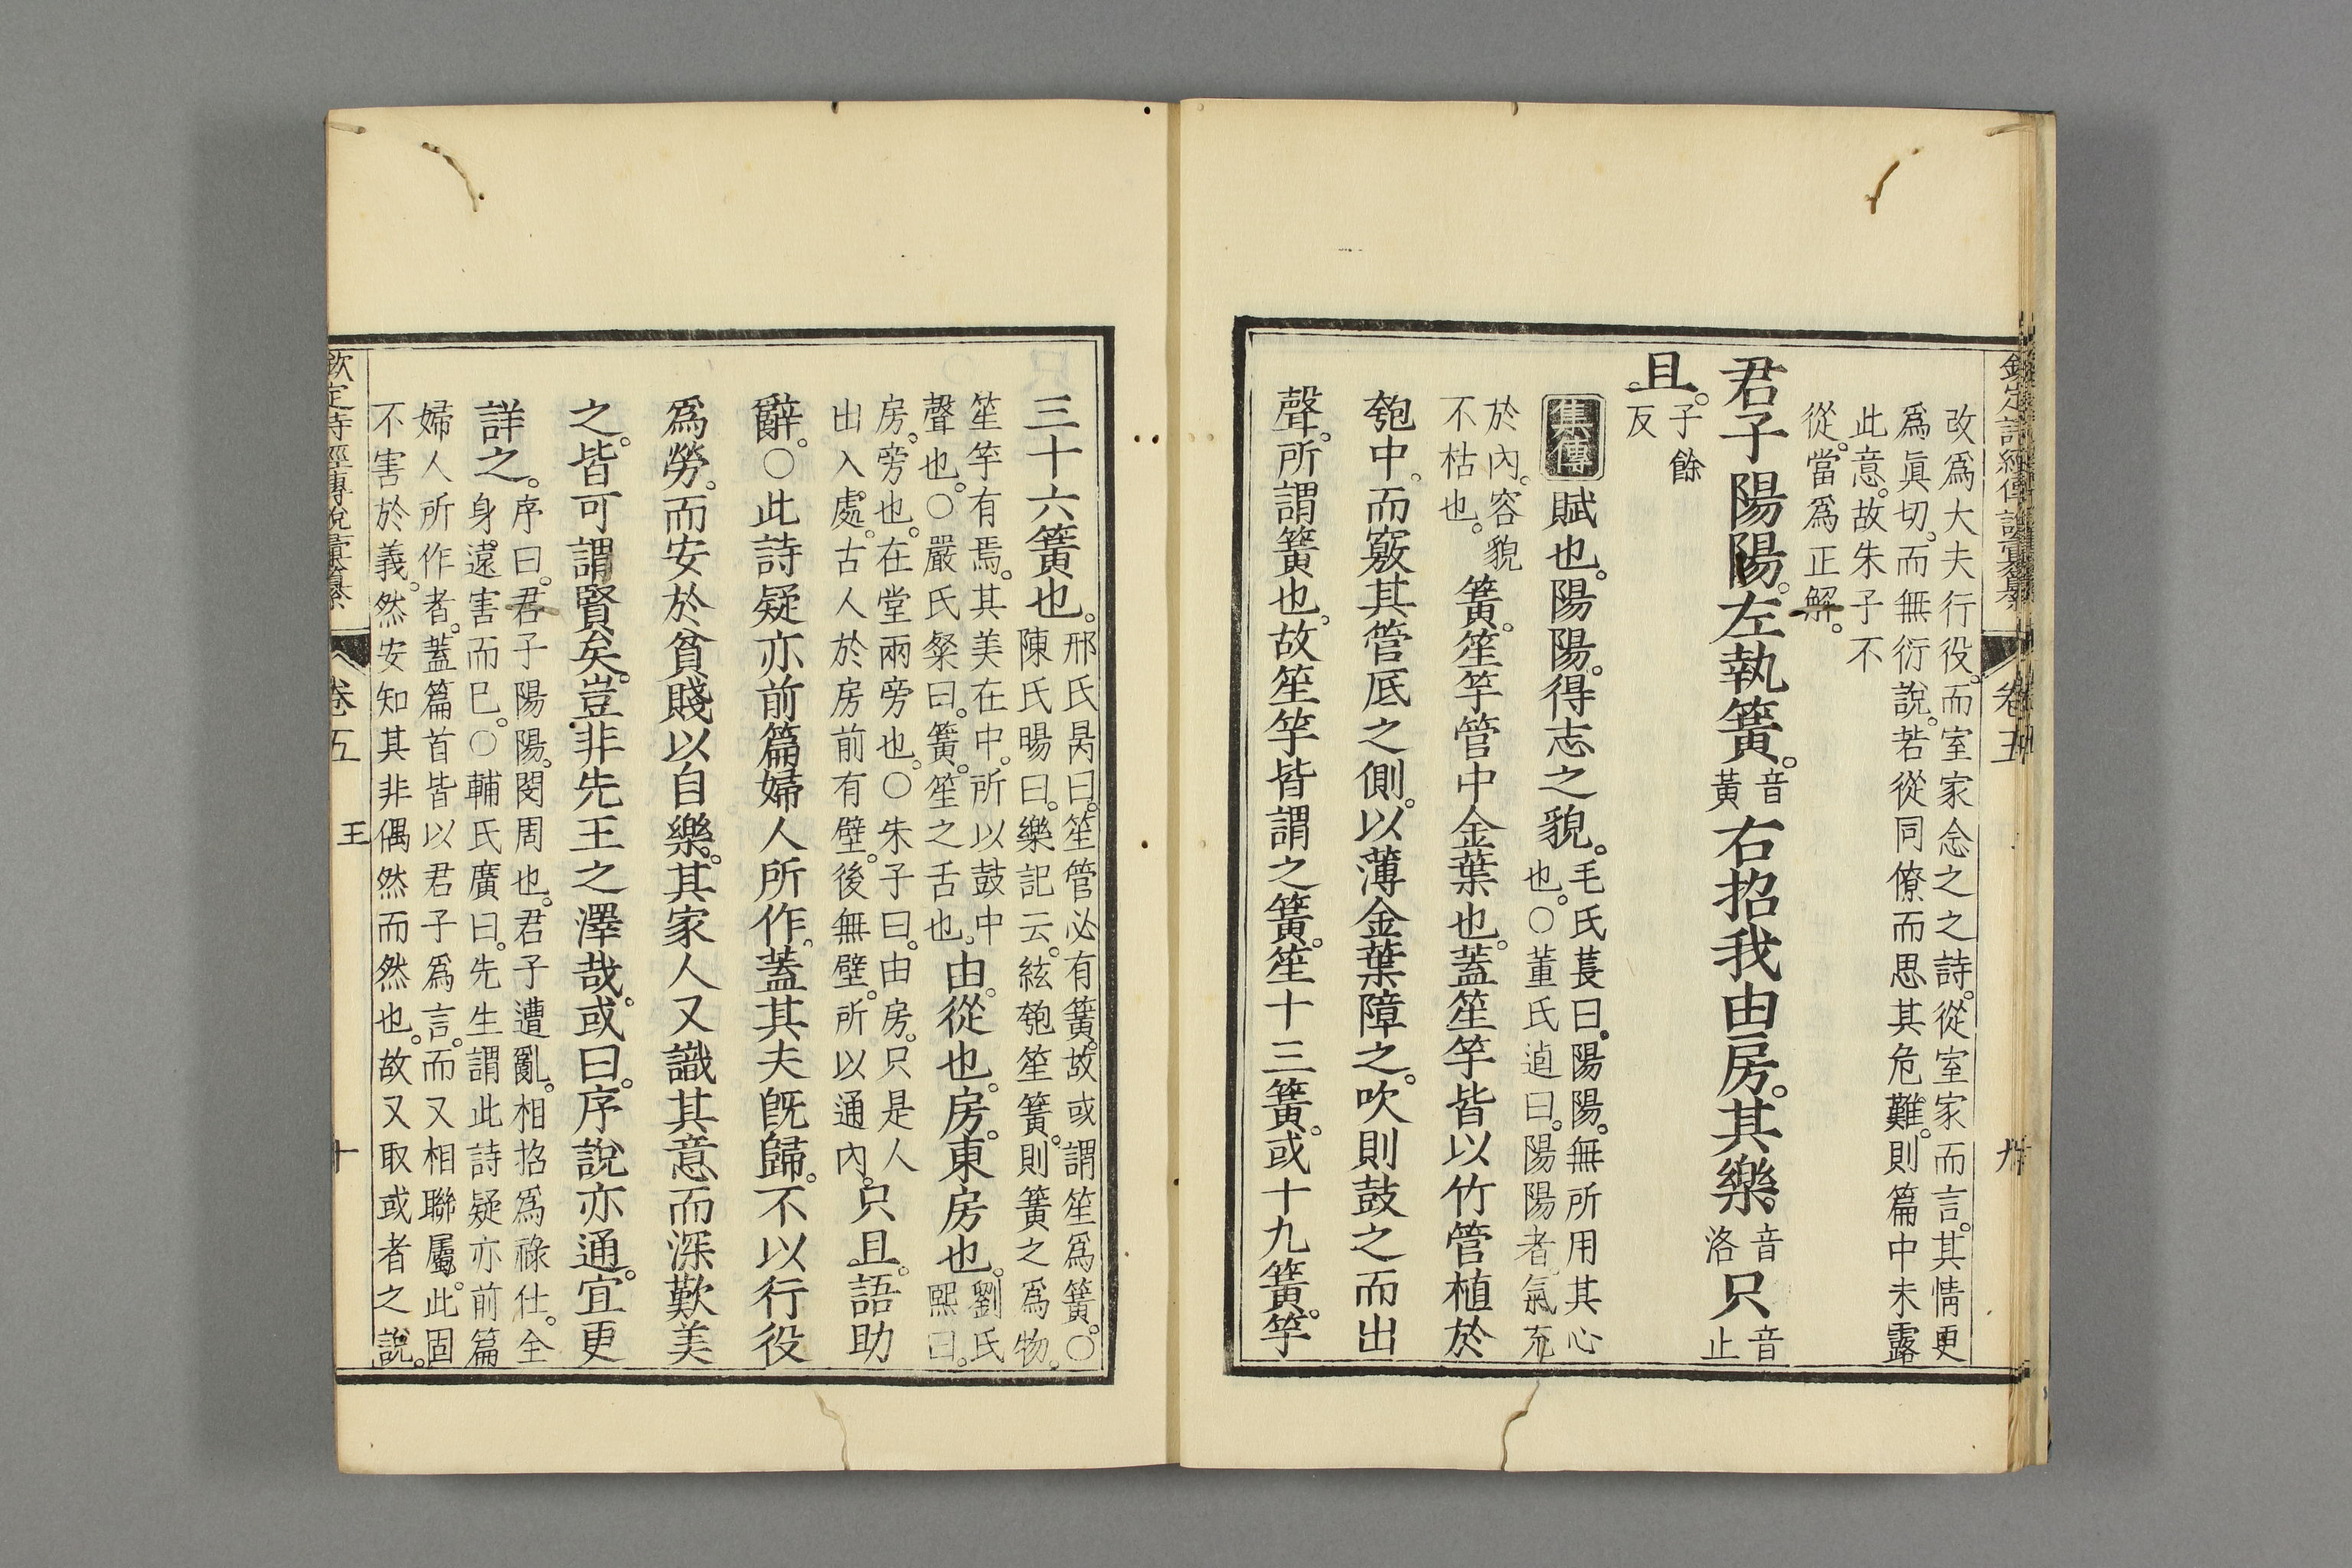 欽定詩經傳說彙纂 卷五
改爲大夫行役。而室家念之之詩。從室家而言。其情更
爲眞切。而無衍說。若從同僚而思其危難。則篇中未露
此意。故朱子不
從。當爲正解。
君子陽陽。左執簧。音黃右招我由房。其樂音洛只音止
且。子餘反
集傳 賦也。陽陽。得志之貌。毛氏萇曰。陽陽。無所用其心
也。○董氏逌曰。陽陽者。氣充
於內。容貌
不枯也。簧。笙竽管中金葉也。蓋笙竽皆以竹管植於
匏中。而竅其管底之側。以薄金葉障之。吹則鼓之而出
聲。所謂簧也。故笙竽皆謂之簧。笙十三簧。或十九簧。竽
三十六簧也。邢氏昺曰。笙管必有簧。故或謂笙爲簧。○
陳氏暘曰。樂記云。絃匏笙簧。則簧之爲物。
笙竽有焉。其美在中。所以鼓中
聲也。○嚴氏粲曰。簧。笙之舌也。由。從也。房。東房也。劉氏熙曰。
房。旁也。在堂兩旁也。○朱子曰。由房。只是人
出入處。古人於房前有壁。後無壁。所以通內。只且。語助
辭。○此詩疑亦前篇婦人所作。蓋其夫旣歸。不以行役
爲勞。而安於貧賤以自樂。其家人又識其意而深歎美
之。皆可謂賢矣。豈非先王之澤哉。或曰。序說亦通。宜更
詳之。序曰。君子陽陽。閔周也。君子遭亂。相招爲祿仕。全
身遠害而已。○輔氏廣曰。先生謂此詩疑亦前篇
婦人所作者。蓋篇首皆以君子爲言。而又相聯屬。此固
不害於義。然安知其非偶然而然也。故又取或者之說。
欽定詩經傳說彙纂 卷五 王 十